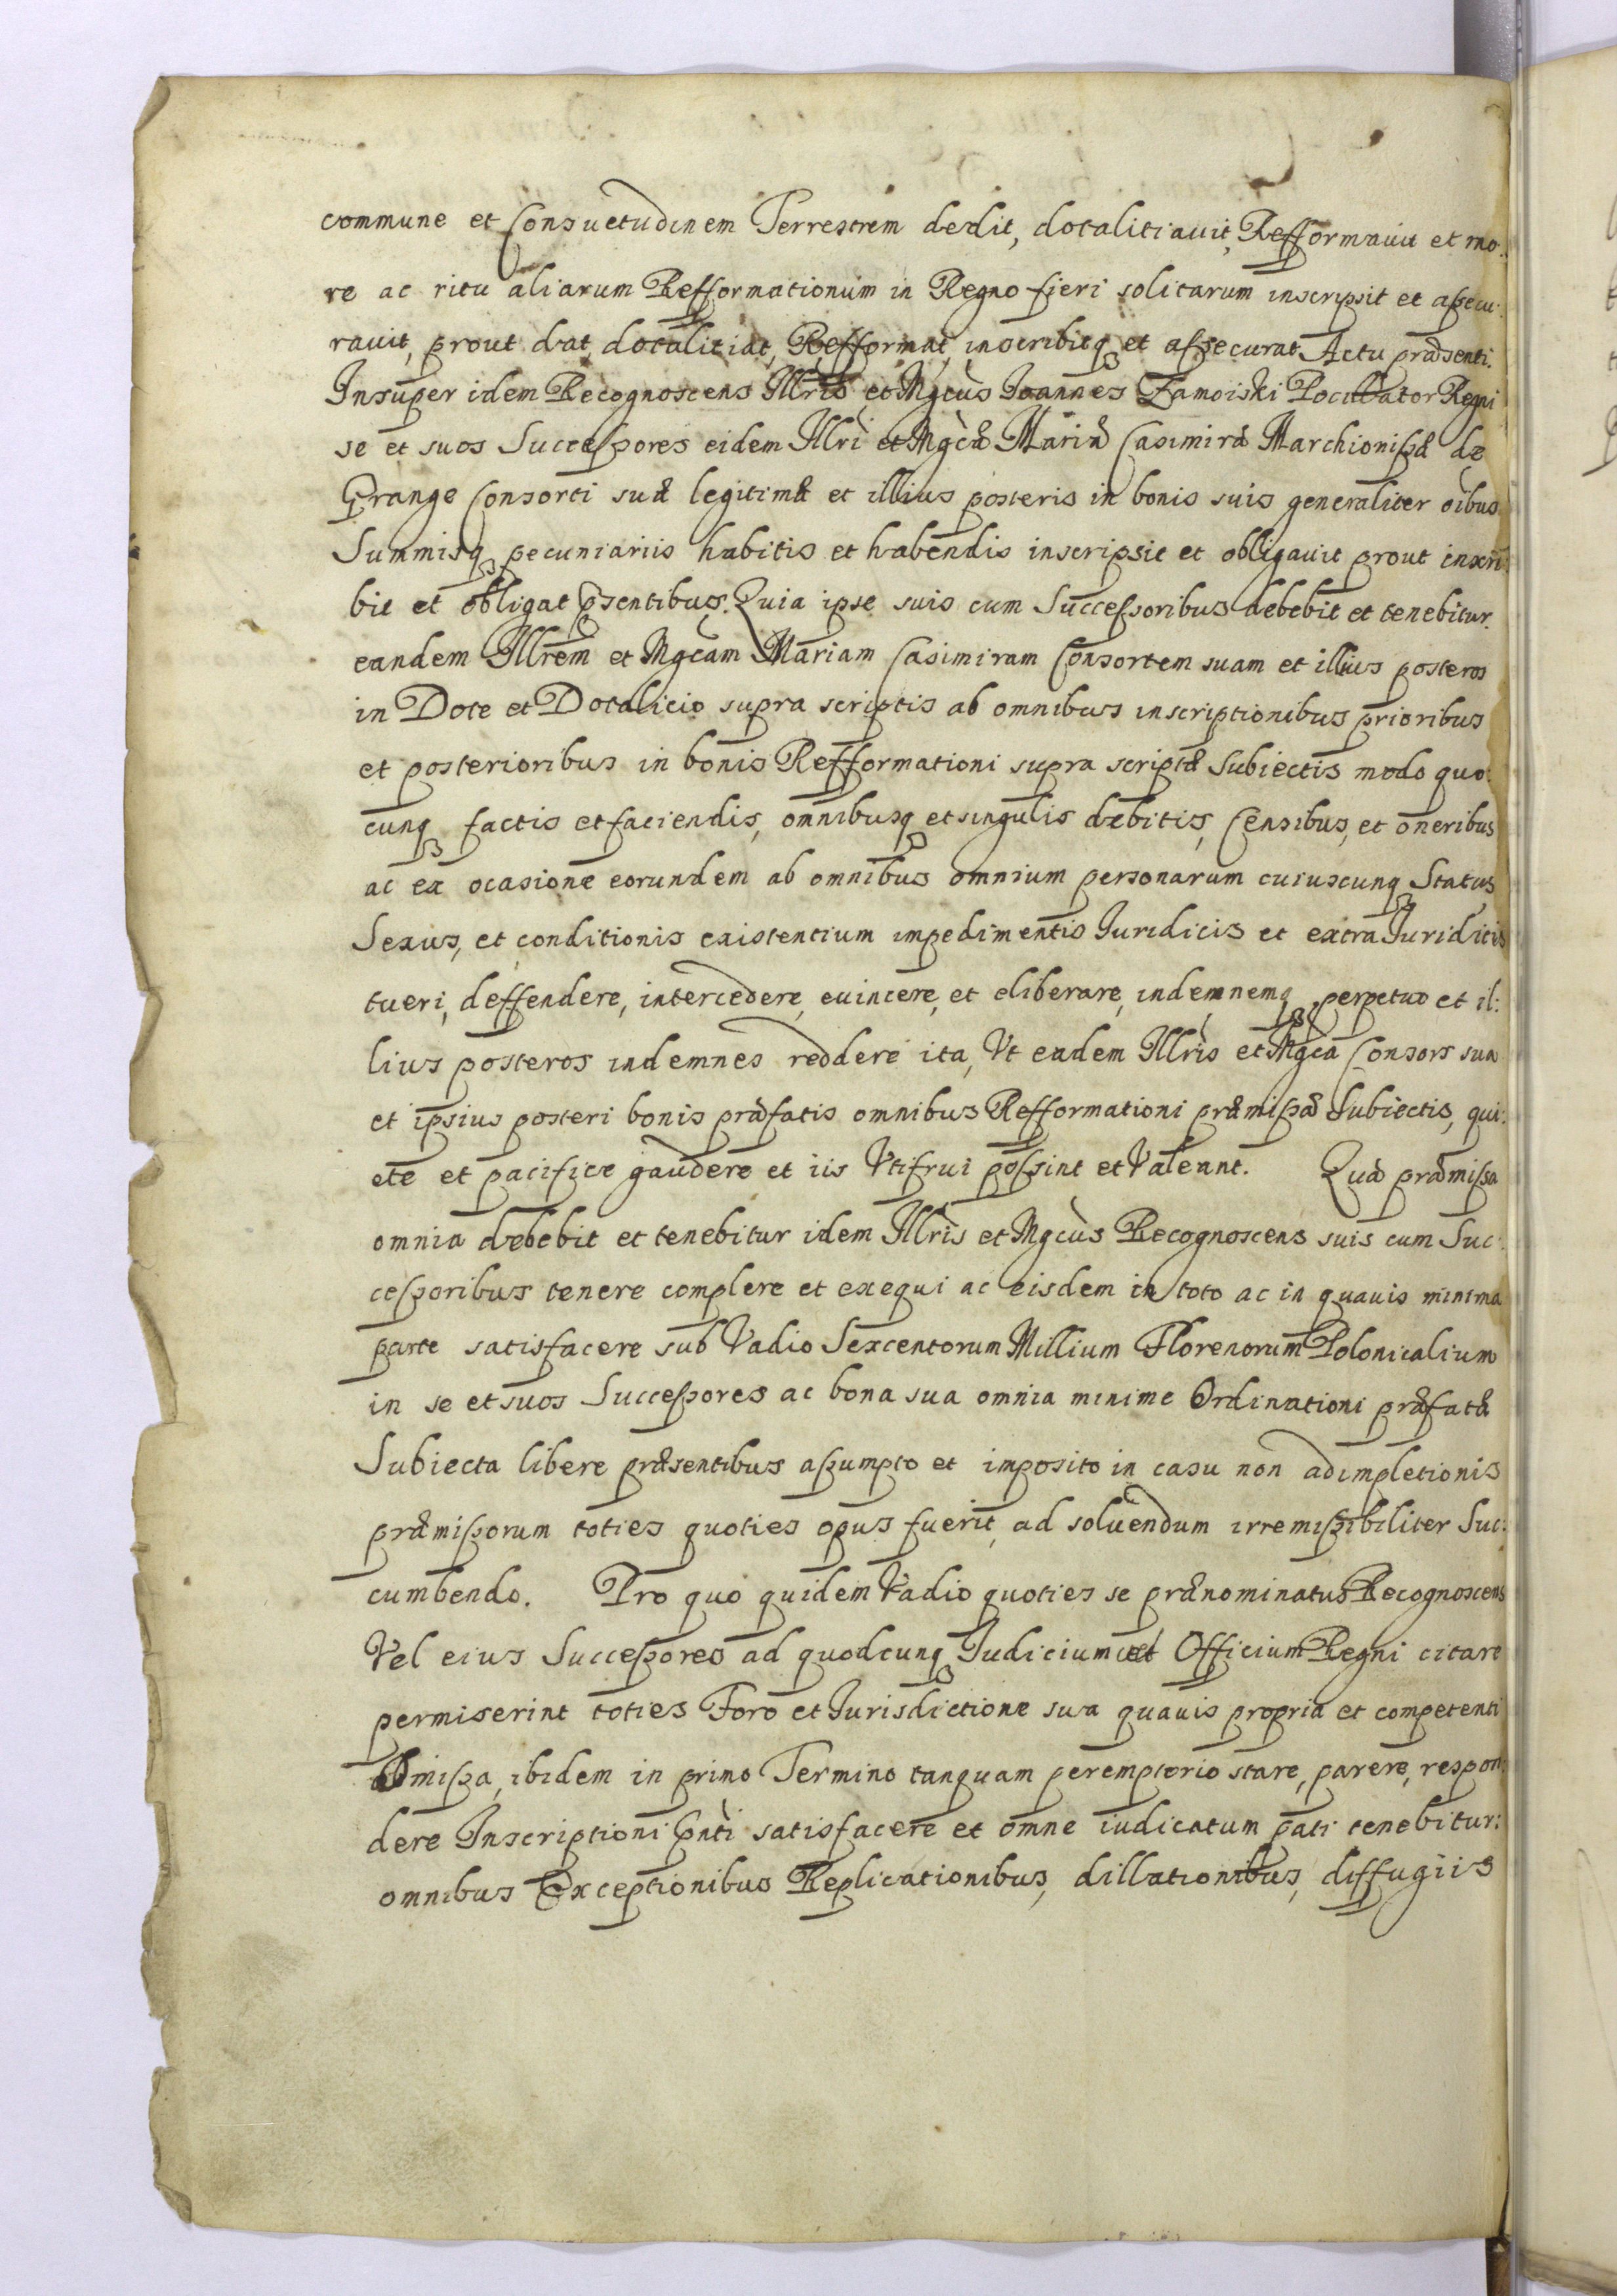 commune et Consuetudinem Terrestrem dedit, dotalitiauit, Refformauit et mo:
re ac ritu aliarum Refformationum in Regno fieri solitarum inscripsit et assecu:
rauit, prout dat, dotalitiat, Refformat, inscribitq₃ et assecurat Actu præsenti.
Insuper idem Recognoscens Illris et Mgcus Joannes Zamoiski Pocillator Regni
se et suos Successores eidem Illri et Mgcæ Mariæ Casimiræ Marchionissæ de
Grange Consorti suæ legitimæ et illius posteris in bonis suis generaliter oibus
Summisq₃ pecuniariis habitis et habendis inscripsit et obligauit prout inscri:
bit et obligat pṡentibus. Quia ipse suis cum Successoribus debebit et tenebitur
eandem Illrem et Mgcam Mariam Casimiram Consortem suam et illius posteros
in Dote et Dotalicio supra scriptis ab omnibus inscriptionibus prioribus
et posterioribus in bonis Refformationi supra scriptæ Subiectis modo quo:
cunq₃ factis et faciendis, omnibusq₃ et singulis debitis, Censibus, et oneribus
ac ex ocasione eorundem ab omnibus omnium personarum cuiuscunq₃ Status
Sexus, et conditionis existentium impedimentis Juridicis et extra Juridicis
tueri, deffendere, intercedere, euincere, et eliberare, indemnemq₃ perpetuo et il:
lius posteros indemnes reddere ita, Vt eadem Illris et Mgca Consors sua
et ipsius posteri bonis præfatis omnibus Refformationi præmissæ Subiectis, qui:
ete et pacifice gaudere et iis Vtifrui possint et Valeant. Quæ præmissa
omnia debebit et tenebitur idem Illris et Mgcus Recognoscens suis cum Suc:
cessoribus tenere complere et exequi ac eisdem in toto ac in quauis minima
parte satisfacere sub Vadio Sexcentorum Millium Florenorum Polonicalium
in se et suos Successores ac bona sua omnia minime Ordinationi præfatæ
Subiecta libere præsentibus assumpto et imposito in casu non adimpletionis
præmissorum toties quoties opus fuerit, ad soluendum irremissibiliter Suc:
cumbendo. Pro quo quidem Vadio quoties se prænominatus Recognoscens
Vel eius Successores ad quodcunq₃ Judicium vel Officium Regni citare
permiserint toties Foro et Jurisdictione sua quauis propria et competenti
obmissa, ibidem in primo Termino tanquam peremptorio stare, parere, respon:
dere Inscriptioni pnti satisfacere et omne iudicatum pati tenebitur:
omnibus Exceptionibus Replicationibus, dillationibus, diffugiis